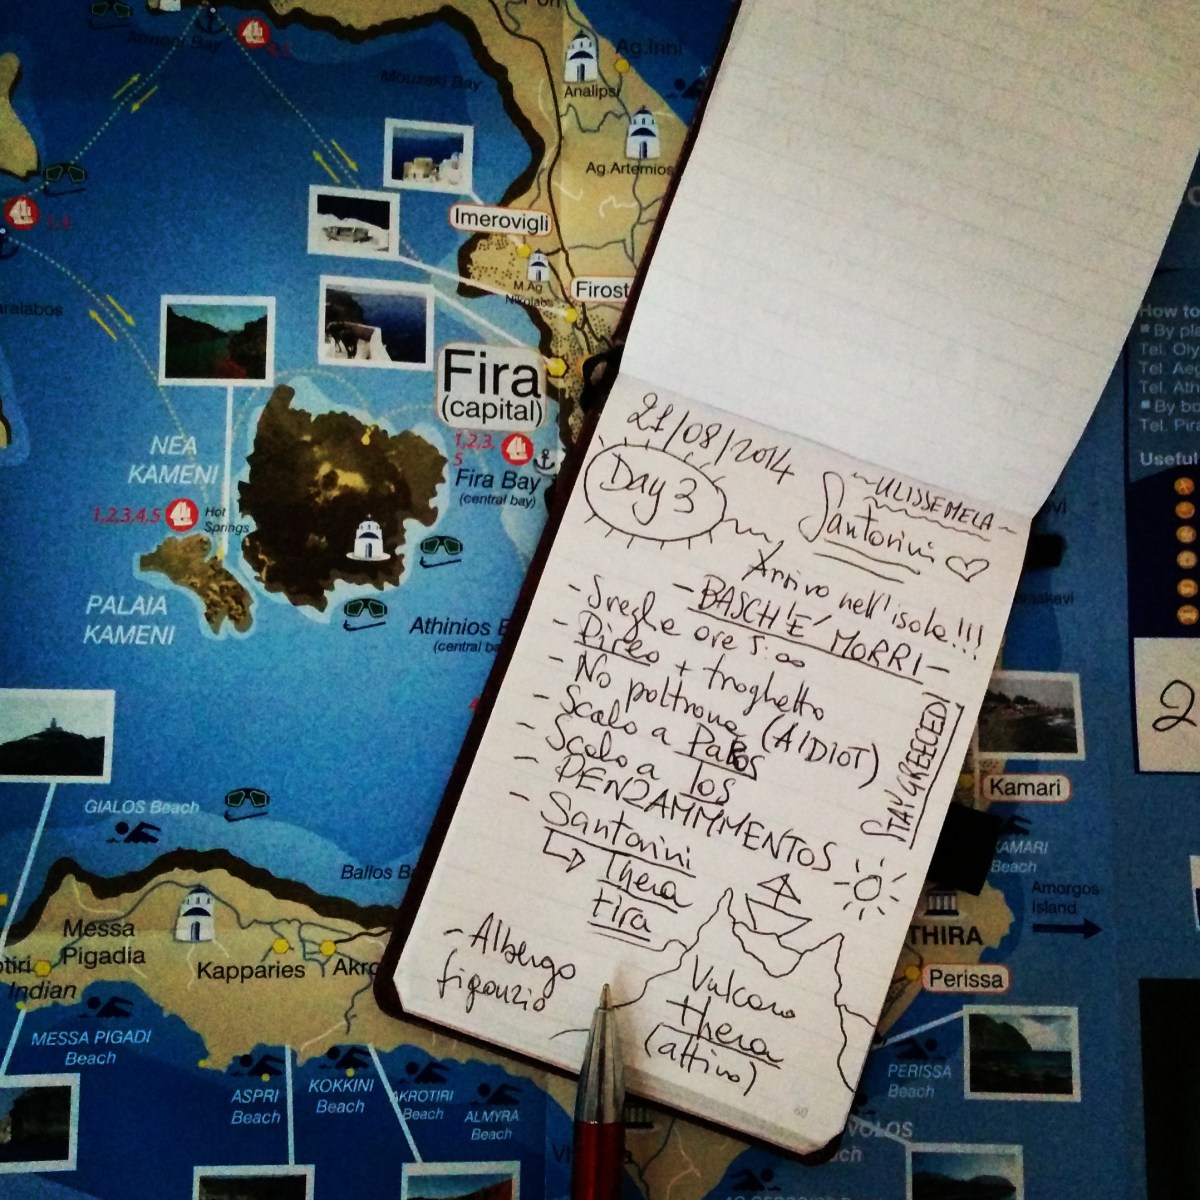 Ag.Irini
Mouzaki Bay
Analipsi
Ag.Artemios
Imerovigli
M.Ag
Nikolaos
Firost
Fira
(capital)
1,2,3,
5
Fira Bay
(central bay)
NEA
KAMENI
1,2,3,4,5
Hot
Springs
PALAIA
KAMENI
Athinios B
(central ba
GIALOS Beach
Ballos Ba
Messa
Pigadia
Kapparies
Akro
otiri
Indian
MESSA PIGADI
Beach
ASPRI
Beach
KOKKINI
Beach
AKROTIRI
Beach
ALMYRA
Beach
21/08/2014
Day 3
~ULISSEMELA~
Santorini
Arrivo nell'isola!!!
- BASCH'E' MORRI -
- Sveglia ore 5:00
- Pireo + traghetto
- No poltrona (AIDIOT)
- Scalo a PaROS
- Scalo a Ios
- PENZAMMMENTOS
- Santorini
Thera
Fira
STAY GREECED!
- Albergo
figonzio
Vulcano
thera
(attivo)
60
How to
By pl
Tel. Oly
Tel. Aeg
Tel. Ath
By ba
Tel. Pira
Useful
2
Kamari
KAMARI
Beach
Amorgos
Island
THIRA
Perissa
PERISSA
Beach
VOLOS